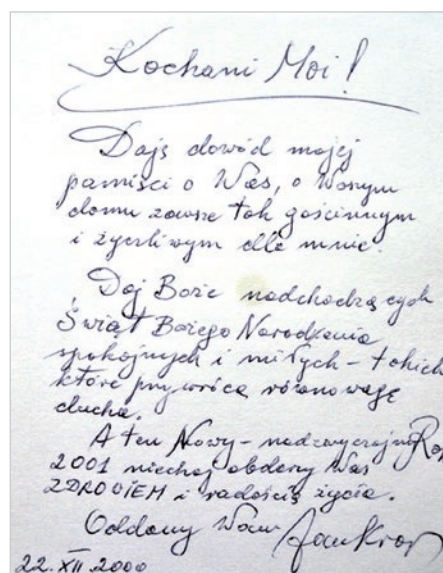 Kochani Moi!
Daję dowód mojej
pamięci o Was, o Waszym
domu zawsze tak gościnnym
i życzliwym dla mnie.
Daj Boże nadchodzących
Świąt Bożego Narodzenia
spokojnych i miłych - takich
które przywrócą równowagę
ducha.
A ten Nowy - nadzwyczajny Rok
2001 niechaj obdarzy Was
ZDROWIEM i radością życia.
Oddany Wam
22.XII.2000